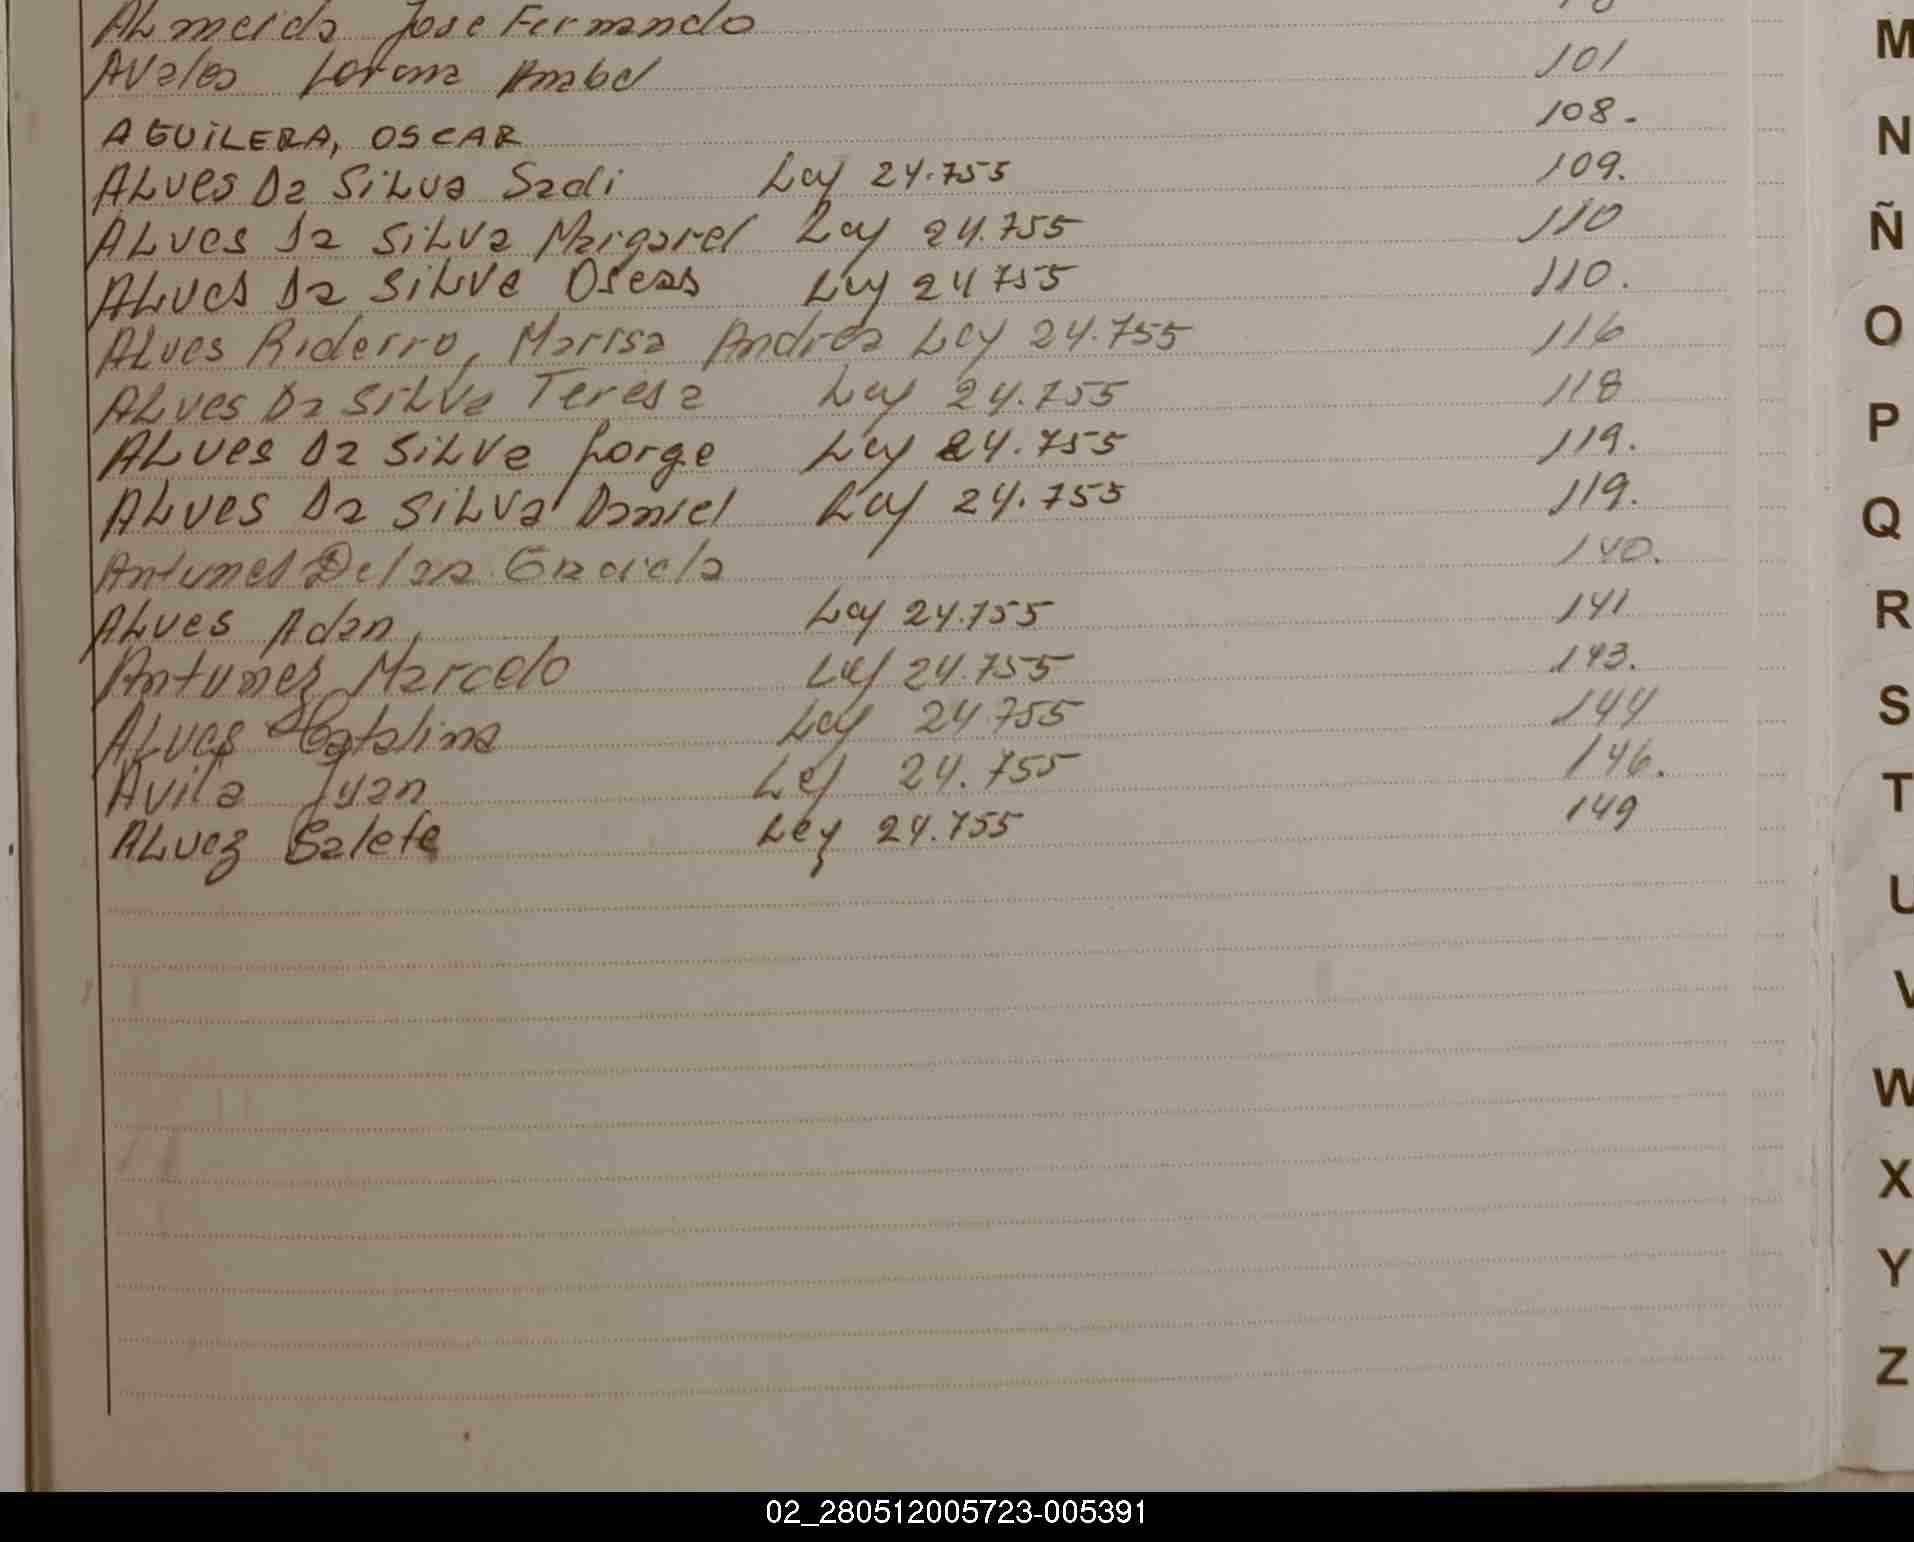 Almeida Jose Fernando
Avalos Lorena Anabel 101
AGUILERA, OSCAR 108.
ALVES Da SiLva Sadi Ley 24.755 109.
ALves Da SiLva Margaret Ley 24.755 110
ALves Da SiLva Oseas Ley 24 755 110.
ALves Riderro, Marisa Andrea Ley 24.755 116
ALves Da SiLva Teresa Ley 24.755 118
ALves Da SiLva Jorge Ley 24.755 119.
ALves Da SiLva Daniel Ley 24.755 119.
Antunes Graciela 140.
ALves Adan Ley 24.755 141
Antunez Marcelo Ley 24.755 143.
ALves Catalina Ley 24.755 144
Avila Juan Ley 24.755 146.
ALvez Salete Ley 24.755 149
M
N
Ñ
O
P
Q
R
S
T
U
V
W
X
Y
Z
02_280512005723-005391